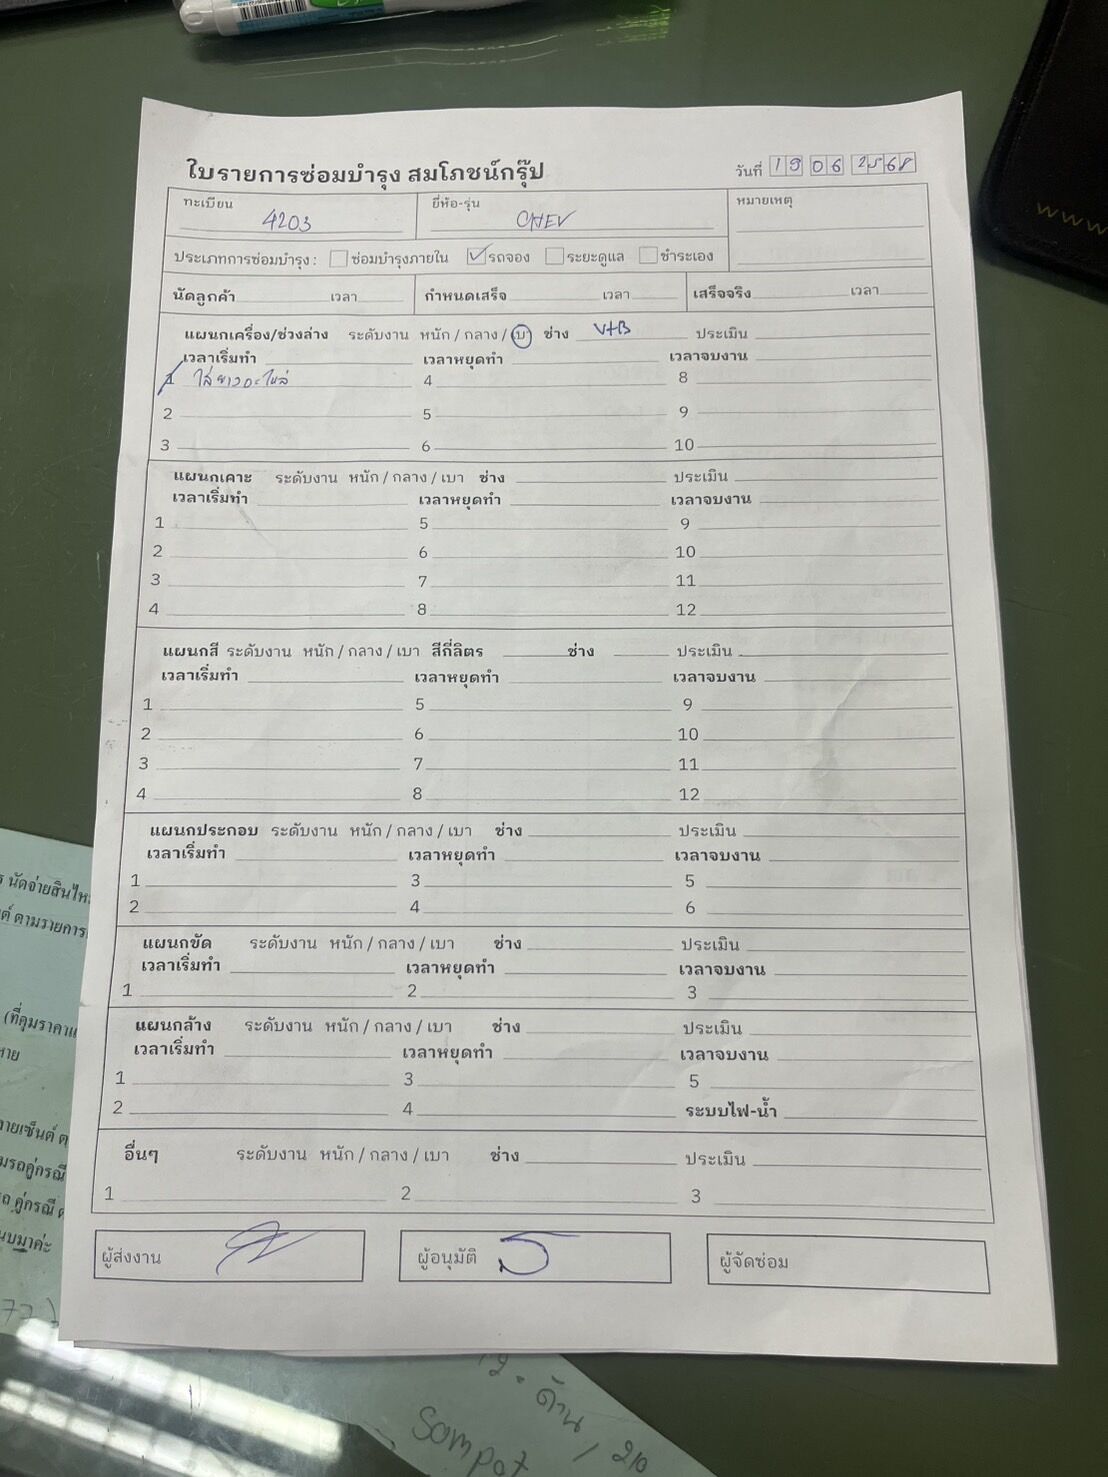 ใบรายการซ่อมบำรุง สมโภชน์กรุ๊ป วันที่ 19 06 2568
ทะเบียน 4203 ยี่ห้อ-รุ่น CHEV หมายเหตุ
ประเภทการซ่อมบำรุง : ซ่อมบำรุงภายใน รถจอง ระยะดูแล ชำระเอง
นัดลูกค้า เวลา กำหนดเสร็จ เวลา เสร็จจริง เวลา
แผนกเครื่อง/ช่วงล่าง ระดับงาน หนัก / กลาง / เบา ช่าง V+B ประเมิน
เวลาเริ่มทำ เวลาหยุดทำ เวลาจบงาน
1 ใส่ยางอะไหล่ 4 8
2 5 9
3 6 10
แผนกเคาะ ระดับงาน หนัก / กลาง / เบา ช่าง ประเมิน
เวลาเริ่มทำ เวลาหยุดทำ เวลาจบงาน
1 5 9
2 6 10
3 7 11
4 8 12
แผนกสี ระดับงาน หนัก / กลาง / เบา สีกี่ลิตร ช่าง ประเมิน
เวลาเริ่มทำ เวลาหยุดทำ เวลาจบงาน
1 5 9
2 6 10
3 7 11
4 8 12
แผนกประกอบ ระดับงาน หนัก / กลาง / เบา ช่าง ประเมิน
เวลาเริ่มทำ เวลาหยุดทำ เวลาจบงาน
1 3 5
2 4 6
แผนกขัด ระดับงาน หนัก / กลาง / เบา ช่าง ประเมิน
เวลาเริ่มทำ เวลาหยุดทำ เวลาจบงาน
1 2 3
แผนกล้าง ระดับงาน หนัก / กลาง / เบา ช่าง ประเมิน
เวลาเริ่มทำ เวลาหยุดทำ เวลาจบงาน
1 3 5
2 4 ระบบไฟ-น้ำ
อื่นๆ ระดับงาน หนัก / กลาง / เบา ช่าง ประเมิน
1 2 3
ผู้ส่งงาน ผู้อนุมัติ ผู้จัดซ่อม
นัดจ่ายสินไห
ต์ ตามรายการ
(ที่คุมราคาแ
หาย
ายเซ็นต์ ต
มรถคู่กรณี
ถ คู่กรณี
นบมาค่ะ
2. ด้าน / 210
Sompot